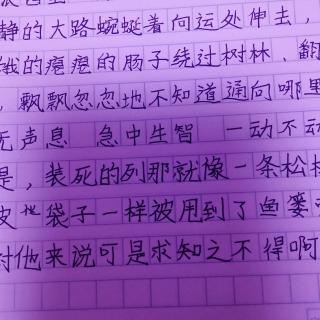 静的大路蜿蜒着向远处伸去，
饿的瘪瘪的肠子绕过树林、翻
，飘飘忽忽地不知道通向哪里
无声息 急中生智 一动不动
是，装死的列那就像一条松松
皮地袋子一样被甩到了鱼篓
对他来说可是求知之不得啊